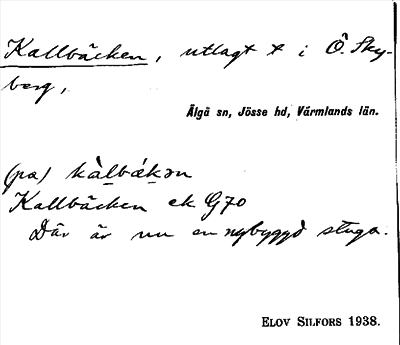 Kallbäcken, utlagt t i Ö. Sky-
berg,
Älgå sn, Jösse hd, Värmlands län.
(pa) kàlbǽkən
Kallbäcken ek G70
Där är nu en nybyggd stuga.
ELOV SILFORS 1938.